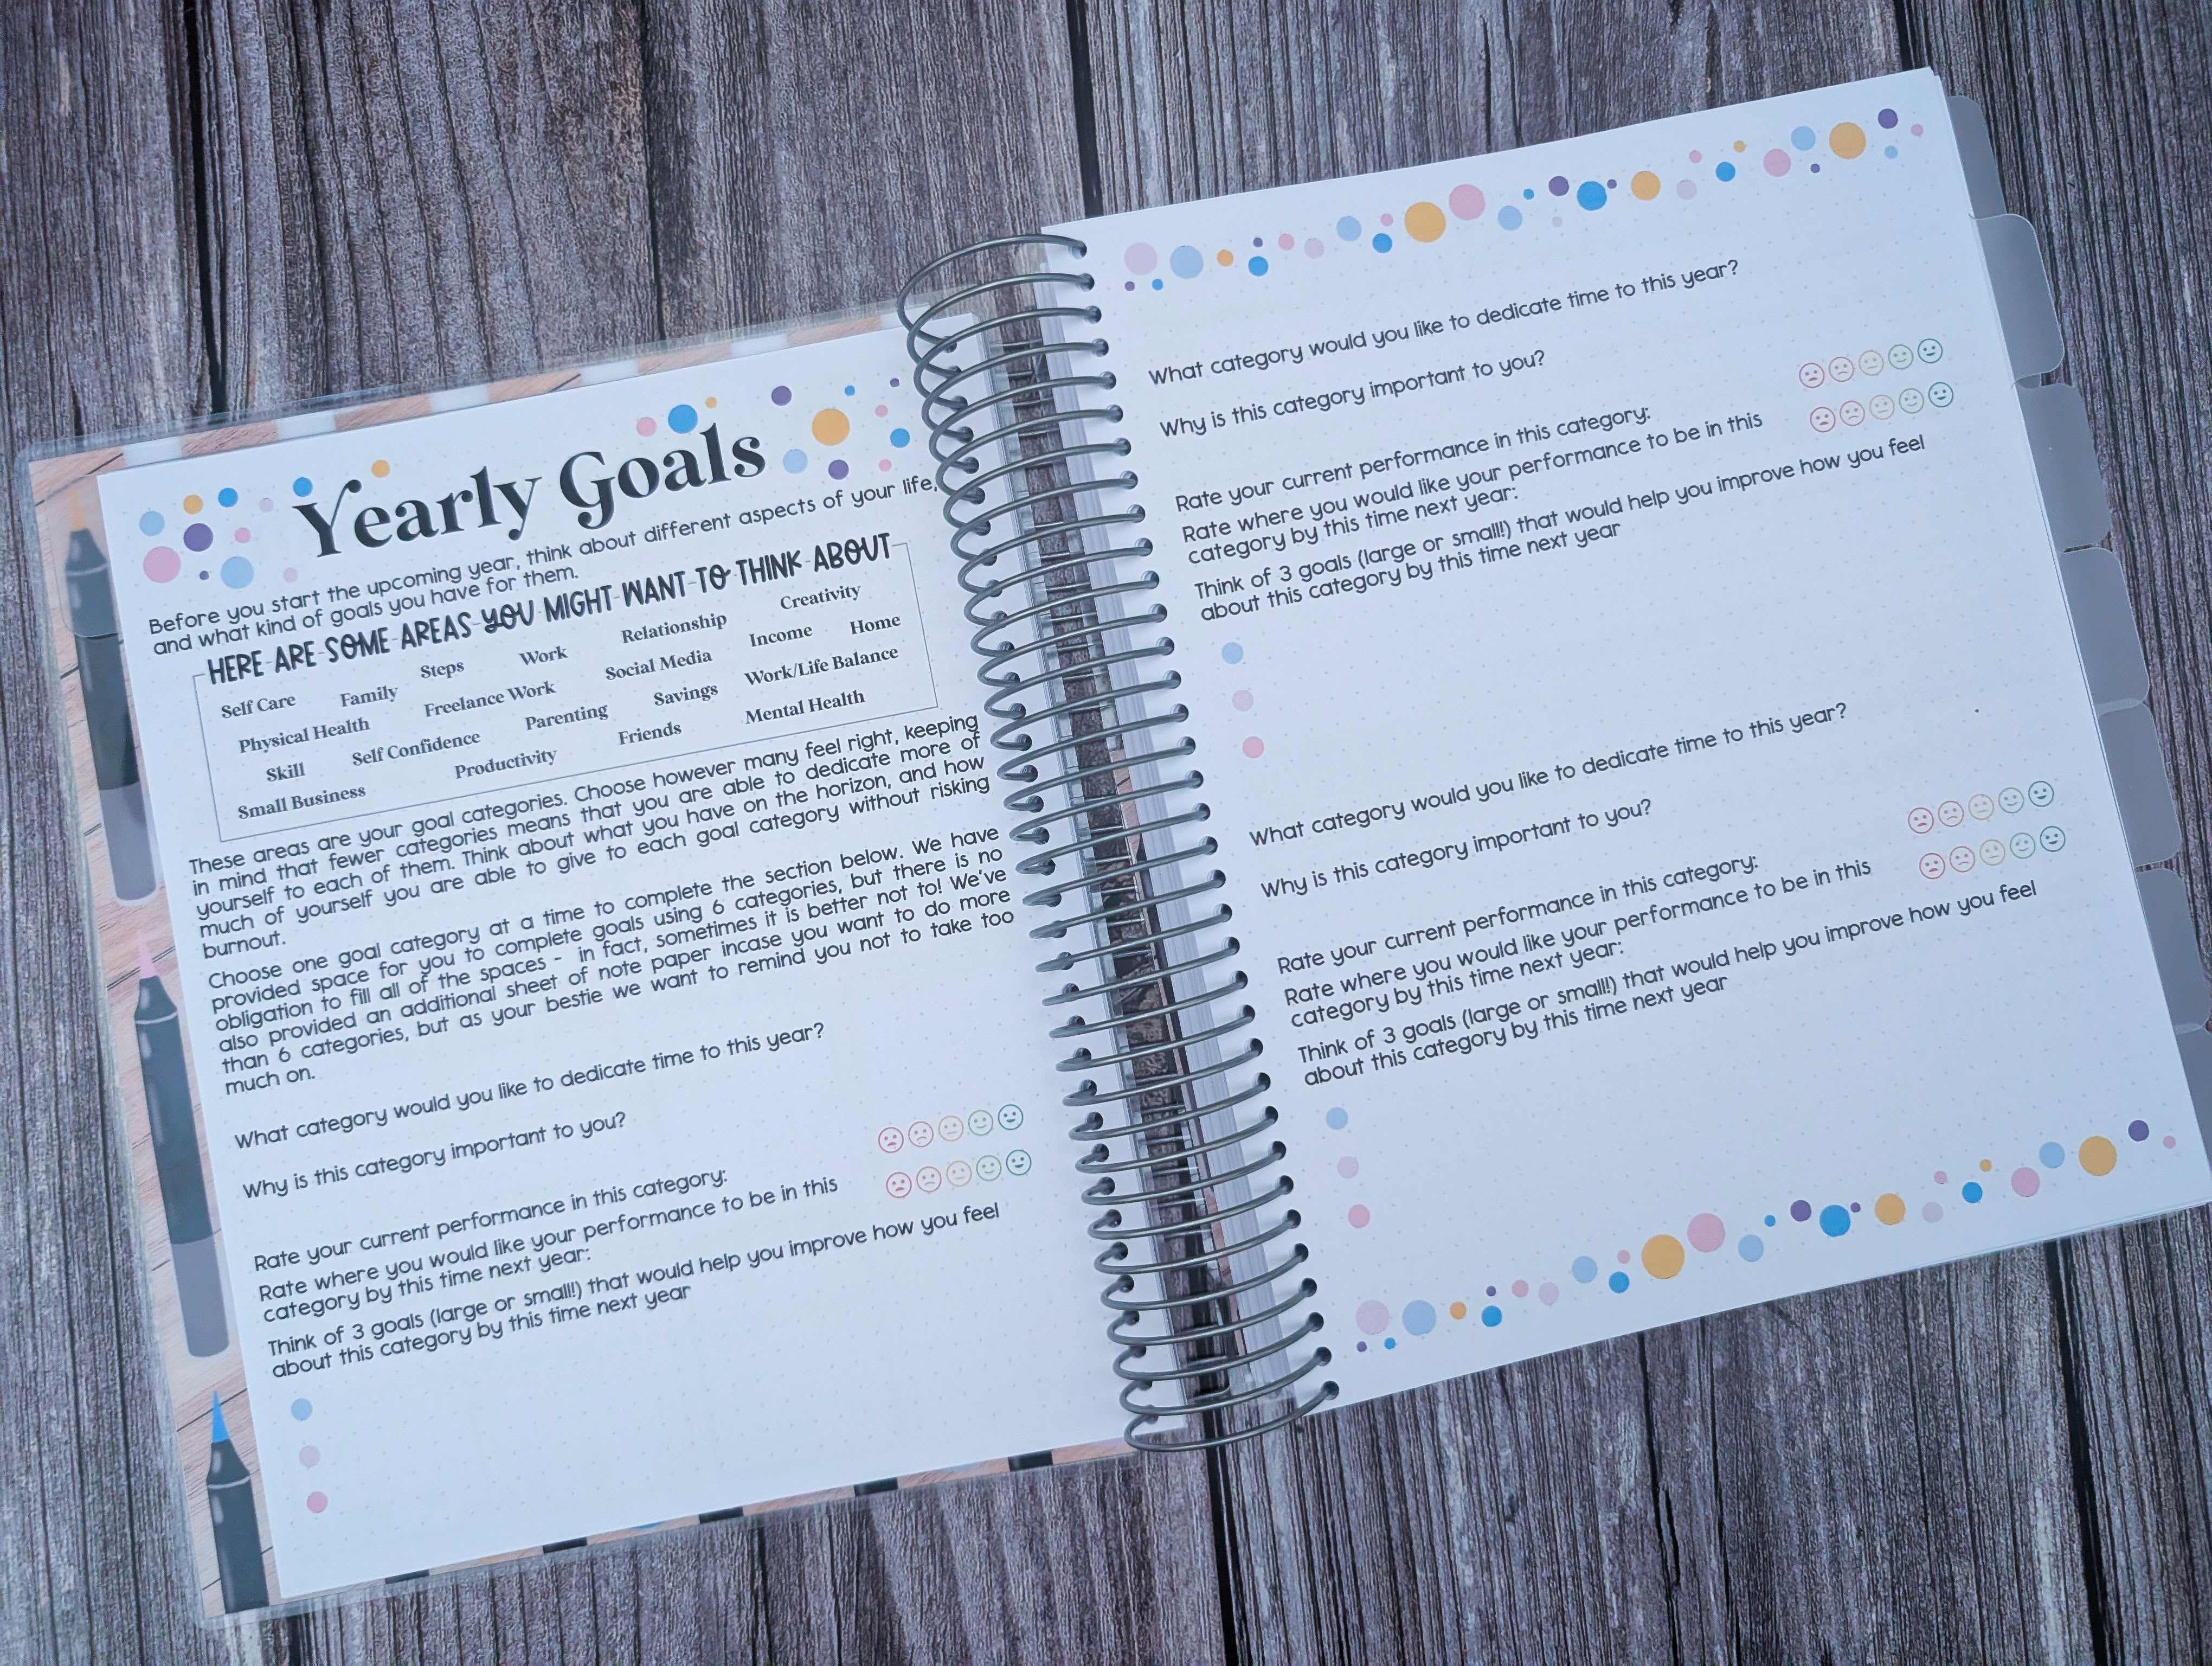 Yearly Goals
Before you start the upcoming year, think about different aspects of your life,
and what kind of goals you have for them.
HERE ARE SOME AREAS YOU MIGHT WANT TO THINK ABOUT
Self Care Family Steps Work Relationship Creativity
Physical Health Freelance Work Social Media Income Home
Skill Self Confidence Parenting Savings Work/Life Balance
Small Business Productivity Friends Mental Health
These areas are your goal categories. Choose however many feel right, keeping
in mind that fewer categories means that you are able to dedicate more of
yourself to each of them. Think about what you have on the horizon, and how
much of yourself you are able to give to each goal category without risking
burnout.
Choose one goal category at a time to complete the section below. We have
provided space for you to complete goals using 6 categories, but there is no
obligation to fill all of the spaces - in fact, sometimes it is better not to! We've
also provided an additional sheet of note paper incase you want to do more
than 6 categories, but as your bestie we want to remind you not to take too
much on.
What category would you like to dedicate time to this year?
Why is this category important to you?
Rate your current performance in this category:
Rate where you would like your performance to be in this
category by this time next year:
Think of 3 goals (large or small!) that would help you improve how you feel
about this category by this time next year
What category would you like to dedicate time to this year?
Why is this category important to you?
Rate your current performance in this category:
Rate where you would like your performance to be in this
category by this time next year:
Think of 3 goals (large or small!) that would help you improve how you feel
about this category by this time next year
What category would you like to dedicate time to this year?
Why is this category important to you?
Rate your current performance in this category:
Rate where you would like your performance to be in this
category by this time next year:
Think of 3 goals (large or small!) that would help you improve how you feel
about this category by this time next year